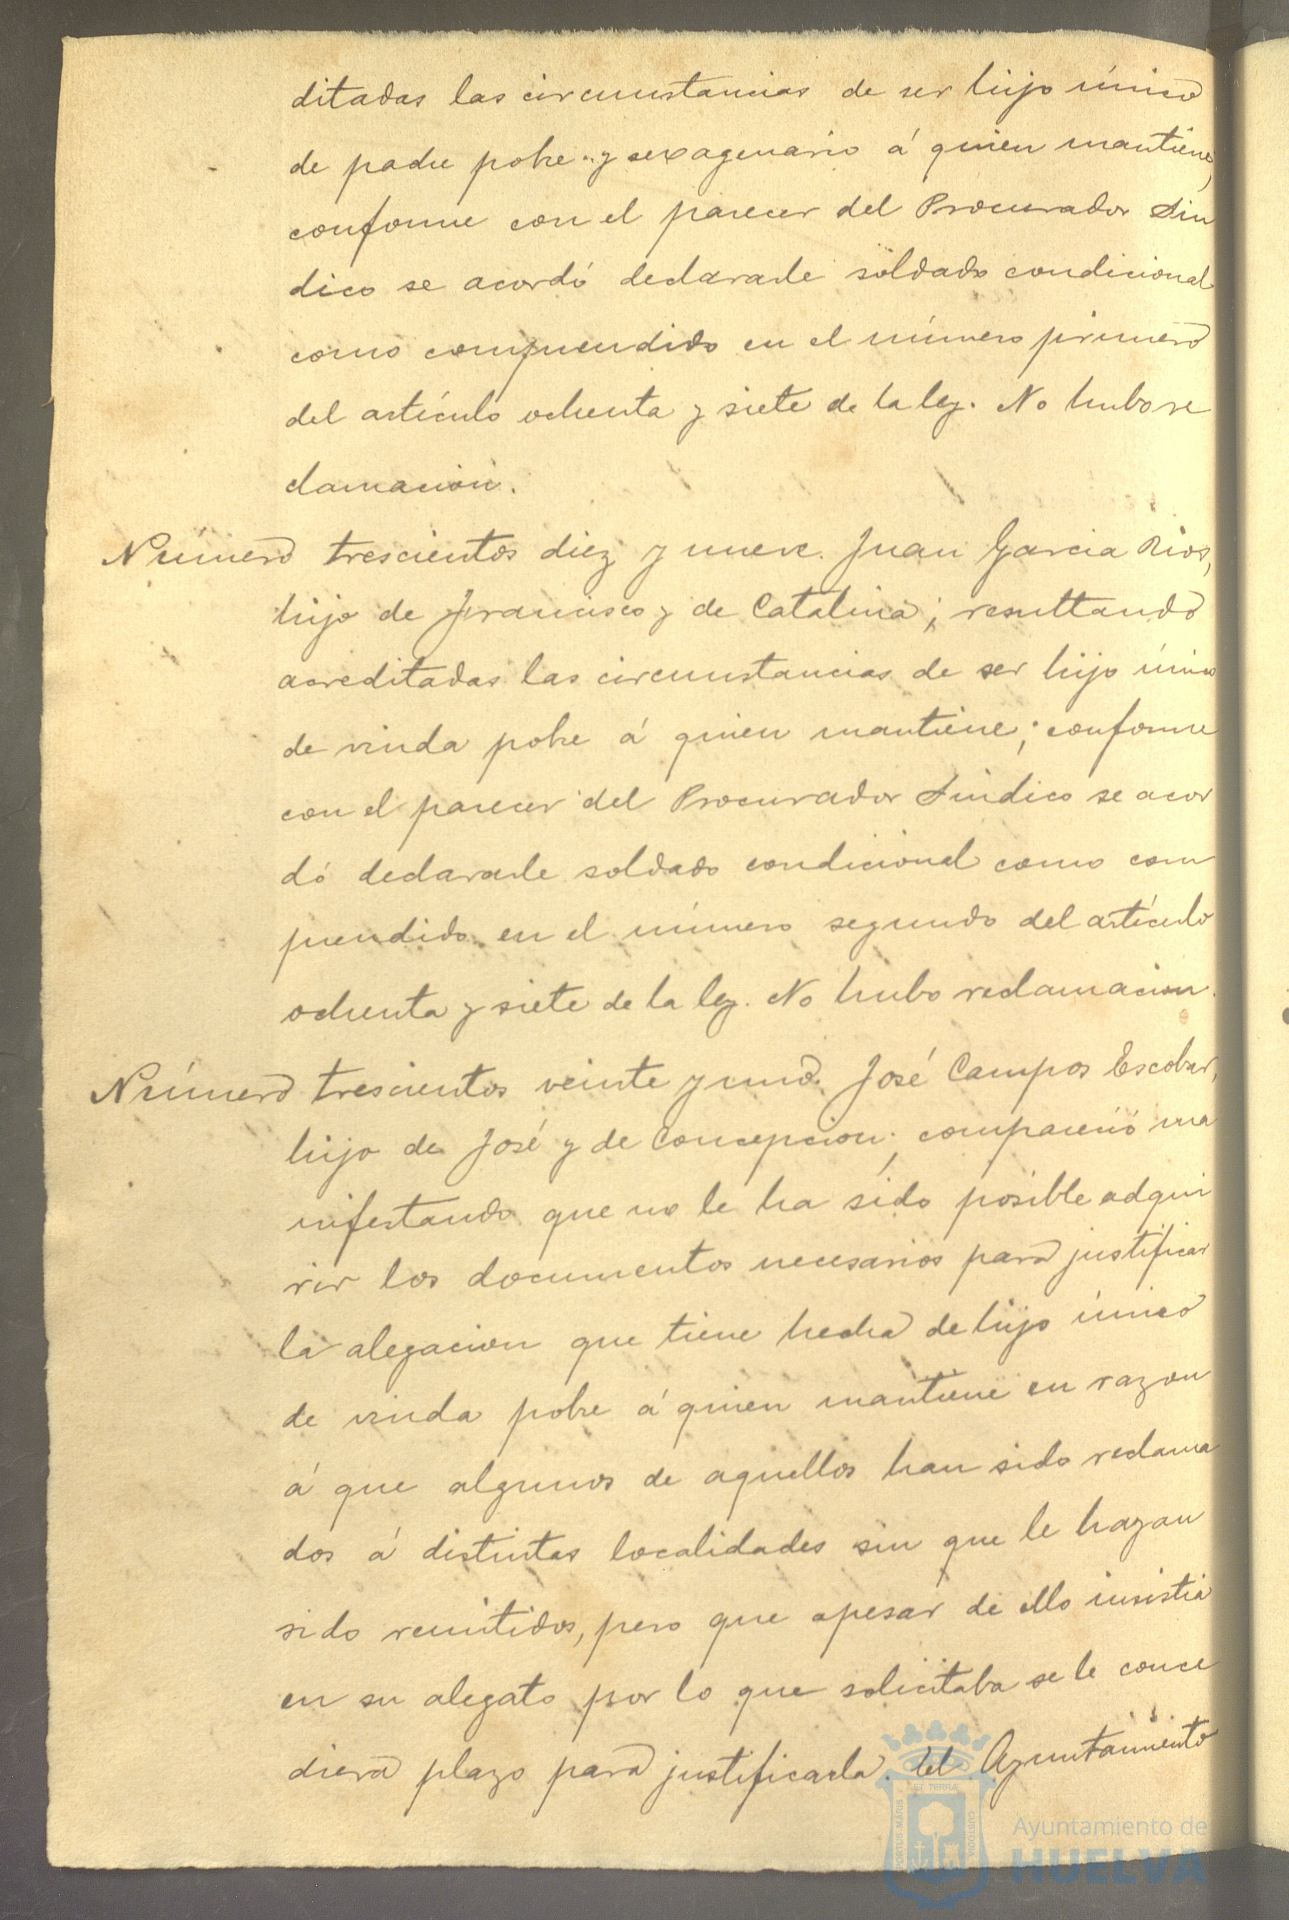 ditadas las circunstancias de ser hijo único
de padre pobre y sexagenario á quien mantiene,
conforme con el parecer del Procurador Sín
dico se acordó declararle soldado condicional
como comprendido en el número primero
del artículo ochenta y siete de la ley. No hubo re
clamacion.
Número trescientos diez y nueve. Juan Garcia Rios,
hijo de Francisco y de Catalina; resultando
acreditadas las circunstancias de ser hijo único
de viuda pobre á quien mantiene; conforme
con el parecer del Procurador Síndico se acor
dó declararle soldado condicional como com
prendido en el número segundo del artículo
ochenta y siete de la ley. No hubo reclamacion.
Número trescientos veinte y uno. José Campos Escobar,
hijo de José y de Concepcion; compareció ma
nifestando que no le ha sido posible adqui
rir los documentos necesarios para justificar
la alegacion que tiene hecha de hijo único
de viuda pobre á quien mantiene en razon
á que algunos de aquellos han sido reclama
dos á distintas localidades sin que le hayan
sido remitidos, pero que apesar de ello insistia
en su alegato por lo que solicitaba se le conce
diera plazo para justificarla. El Ayuntamiento
PORTUS MARIS
ET TERRÆ
CUSTODIA
Ayuntamiento de
HUELVA